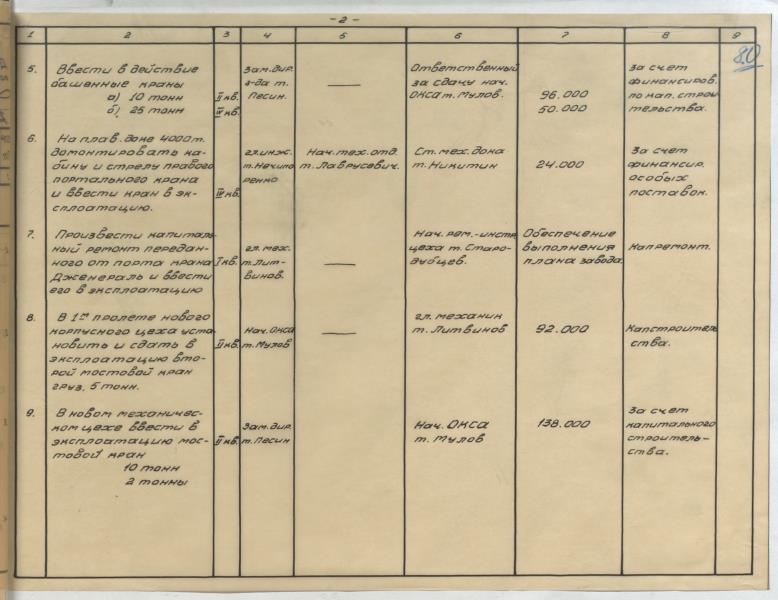 -2-
80
1 2 3 4 5 6 7 8 9
5. Ввести в действие
башенные краны
а) 10 тонн
б) 25 тонн
II кв.
IV кв.
Зам. дир.
з-да т.
Песин.
—
Ответственный
за сдачу нач.
ОКСа т. Мулов.
96.000
50.000
За счет
финансиров.
по кап. строи
тельства.
6. На плав. доке 4000 т.
домонтировать ка-
бину и стрелу правого
портального крана
и ввести кран в эк-
сплоатацию.
IV кв.
гл. инж.
т. Нечипо
ренко
Нач. тех. отд.
т. Лаврусевич.
Ст. мех. дока
т. Никитин
24.000
За счет
финансир.
особых
поставок.
7. Произвести капиталь-
ный ремонт передан-
ного от порта крана
Дженераль и ввести
его в эксплоатацию
I кв.
гл. мех.
т. Лит-
винов.
—
Нач. рем.-инстр.
цеха т. Старо-
дубцев.
Обеспечение
выполнения
плана завода.
Капремонт.
8. В 1ом пролете нового
корпусного цеха уста
новить и сдать в
эксплоатацию вто-
рой мостовой кран
груз. 5 тонн.
II кв.
Нач. ОКСа
т. Мулов
—
гл. механик
т. Литвинов
92.000
Капстроитель
ства.
9. В новом механичес-
ком цехе ввести в
эксплоатацию мос-
товой кран
10 тонн
2 тонны
II кв.
Зам. дир.
т. Песин
Нач. ОКСа
т. Мулов
138.000
За счет
капитального
строитель-
ства.